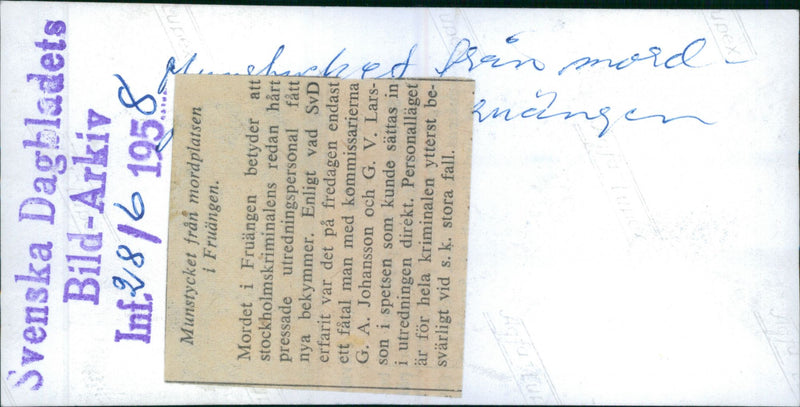 Svenska Dagbladets
Bild-Arkiv
Inf. 28/6 1958
Munstycket från mord-
uängen
Munstycket från mordplatsen
i Fruängen.
Mordet i Fruängen betyder att
stockholmskriminalens redan hårt
pressade utredningspersonal fått
nya bekymmer. Enligt vad SvD
erfarit var det på fredagen endast
ett fåtal man med kommissarierna
G. A. Johansson och G. V. Lars-
son i spetsen som kunde sättas in
i utredningen direkt. Personalläget
är för hela kriminalen ytterst be-
svärligt vid s. k. stora fall.